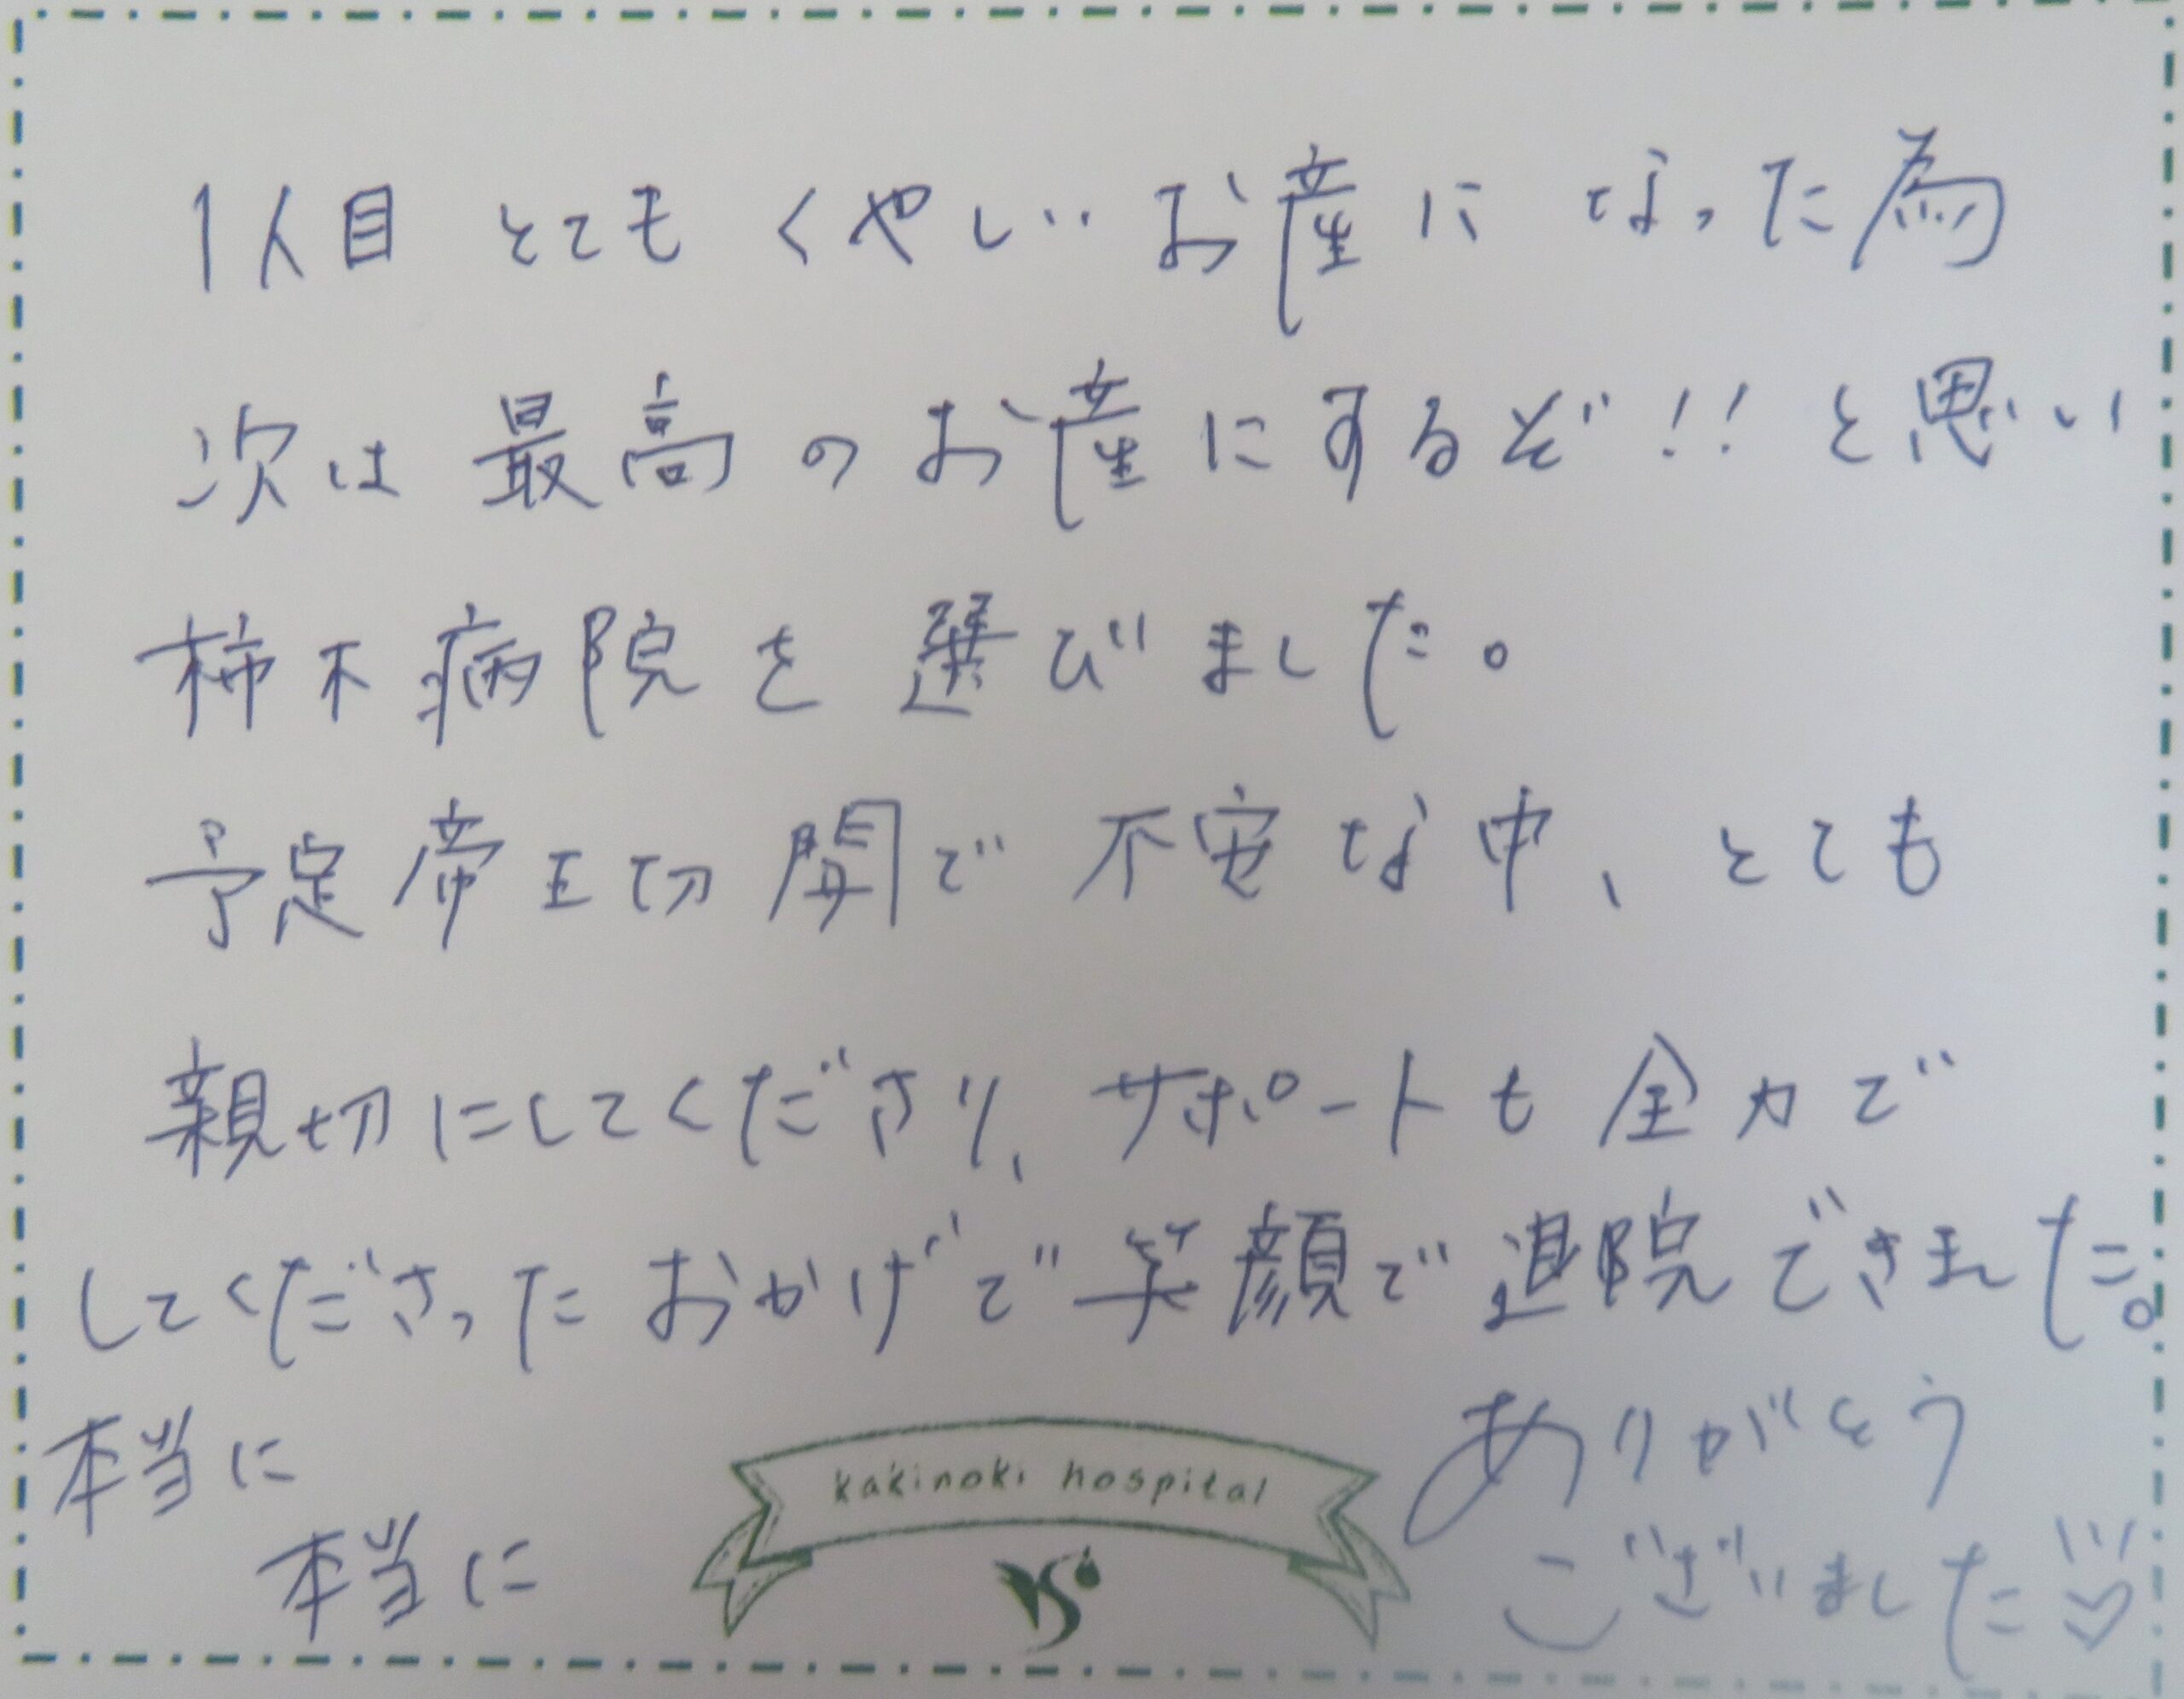 1人目 とても くやしい お産に なった為
次は 最高の お産にするぞ!! と思い
柿木病院を選びました。
予定帝王切開で 不安な中、とても
親切にしてくださり、サポートも 全力で
してくださった おかげで 笑顔で 退院できました。
本当に
本当に
kakinoki hospital
ありがとう
ございました